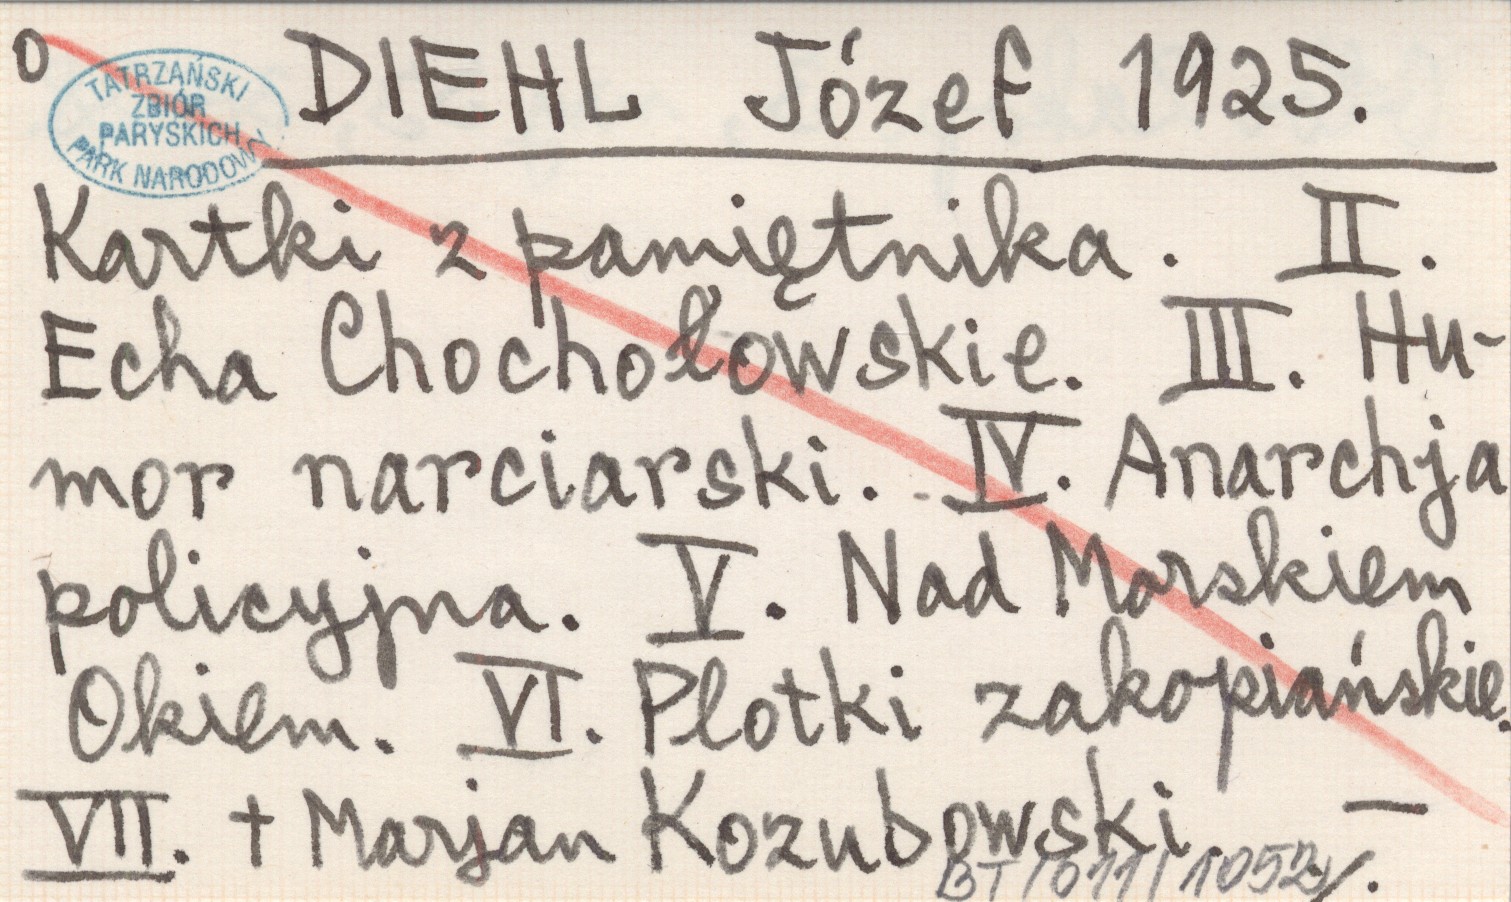 O
DIEHL Józef 1925.
TATRZAŃSKI
ZBIÓR
PARYSKICH
PARK NARODOWY
Kartki z pamiętnika. II.
Echa Chochołowskie. III. Hu-
mor narciarski. IV. Anarchja
policyjna. V. Nad Morskiem
Okiem. VI. Plotki zakopiańskie.
VII. + Marjan Kozubowski. —
BT/011/1052/.